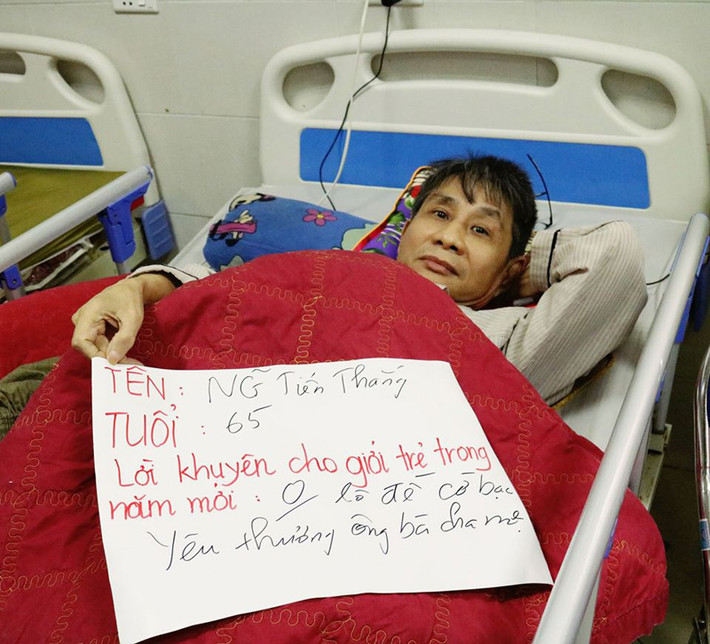 TÊN : NGÔ Tiến Thắng
TUỔI : 65
Lời khuyên cho giới trẻ trong
năm mới : 0 lô đề cờ bạc
Yêu thương ông bà cha mẹ